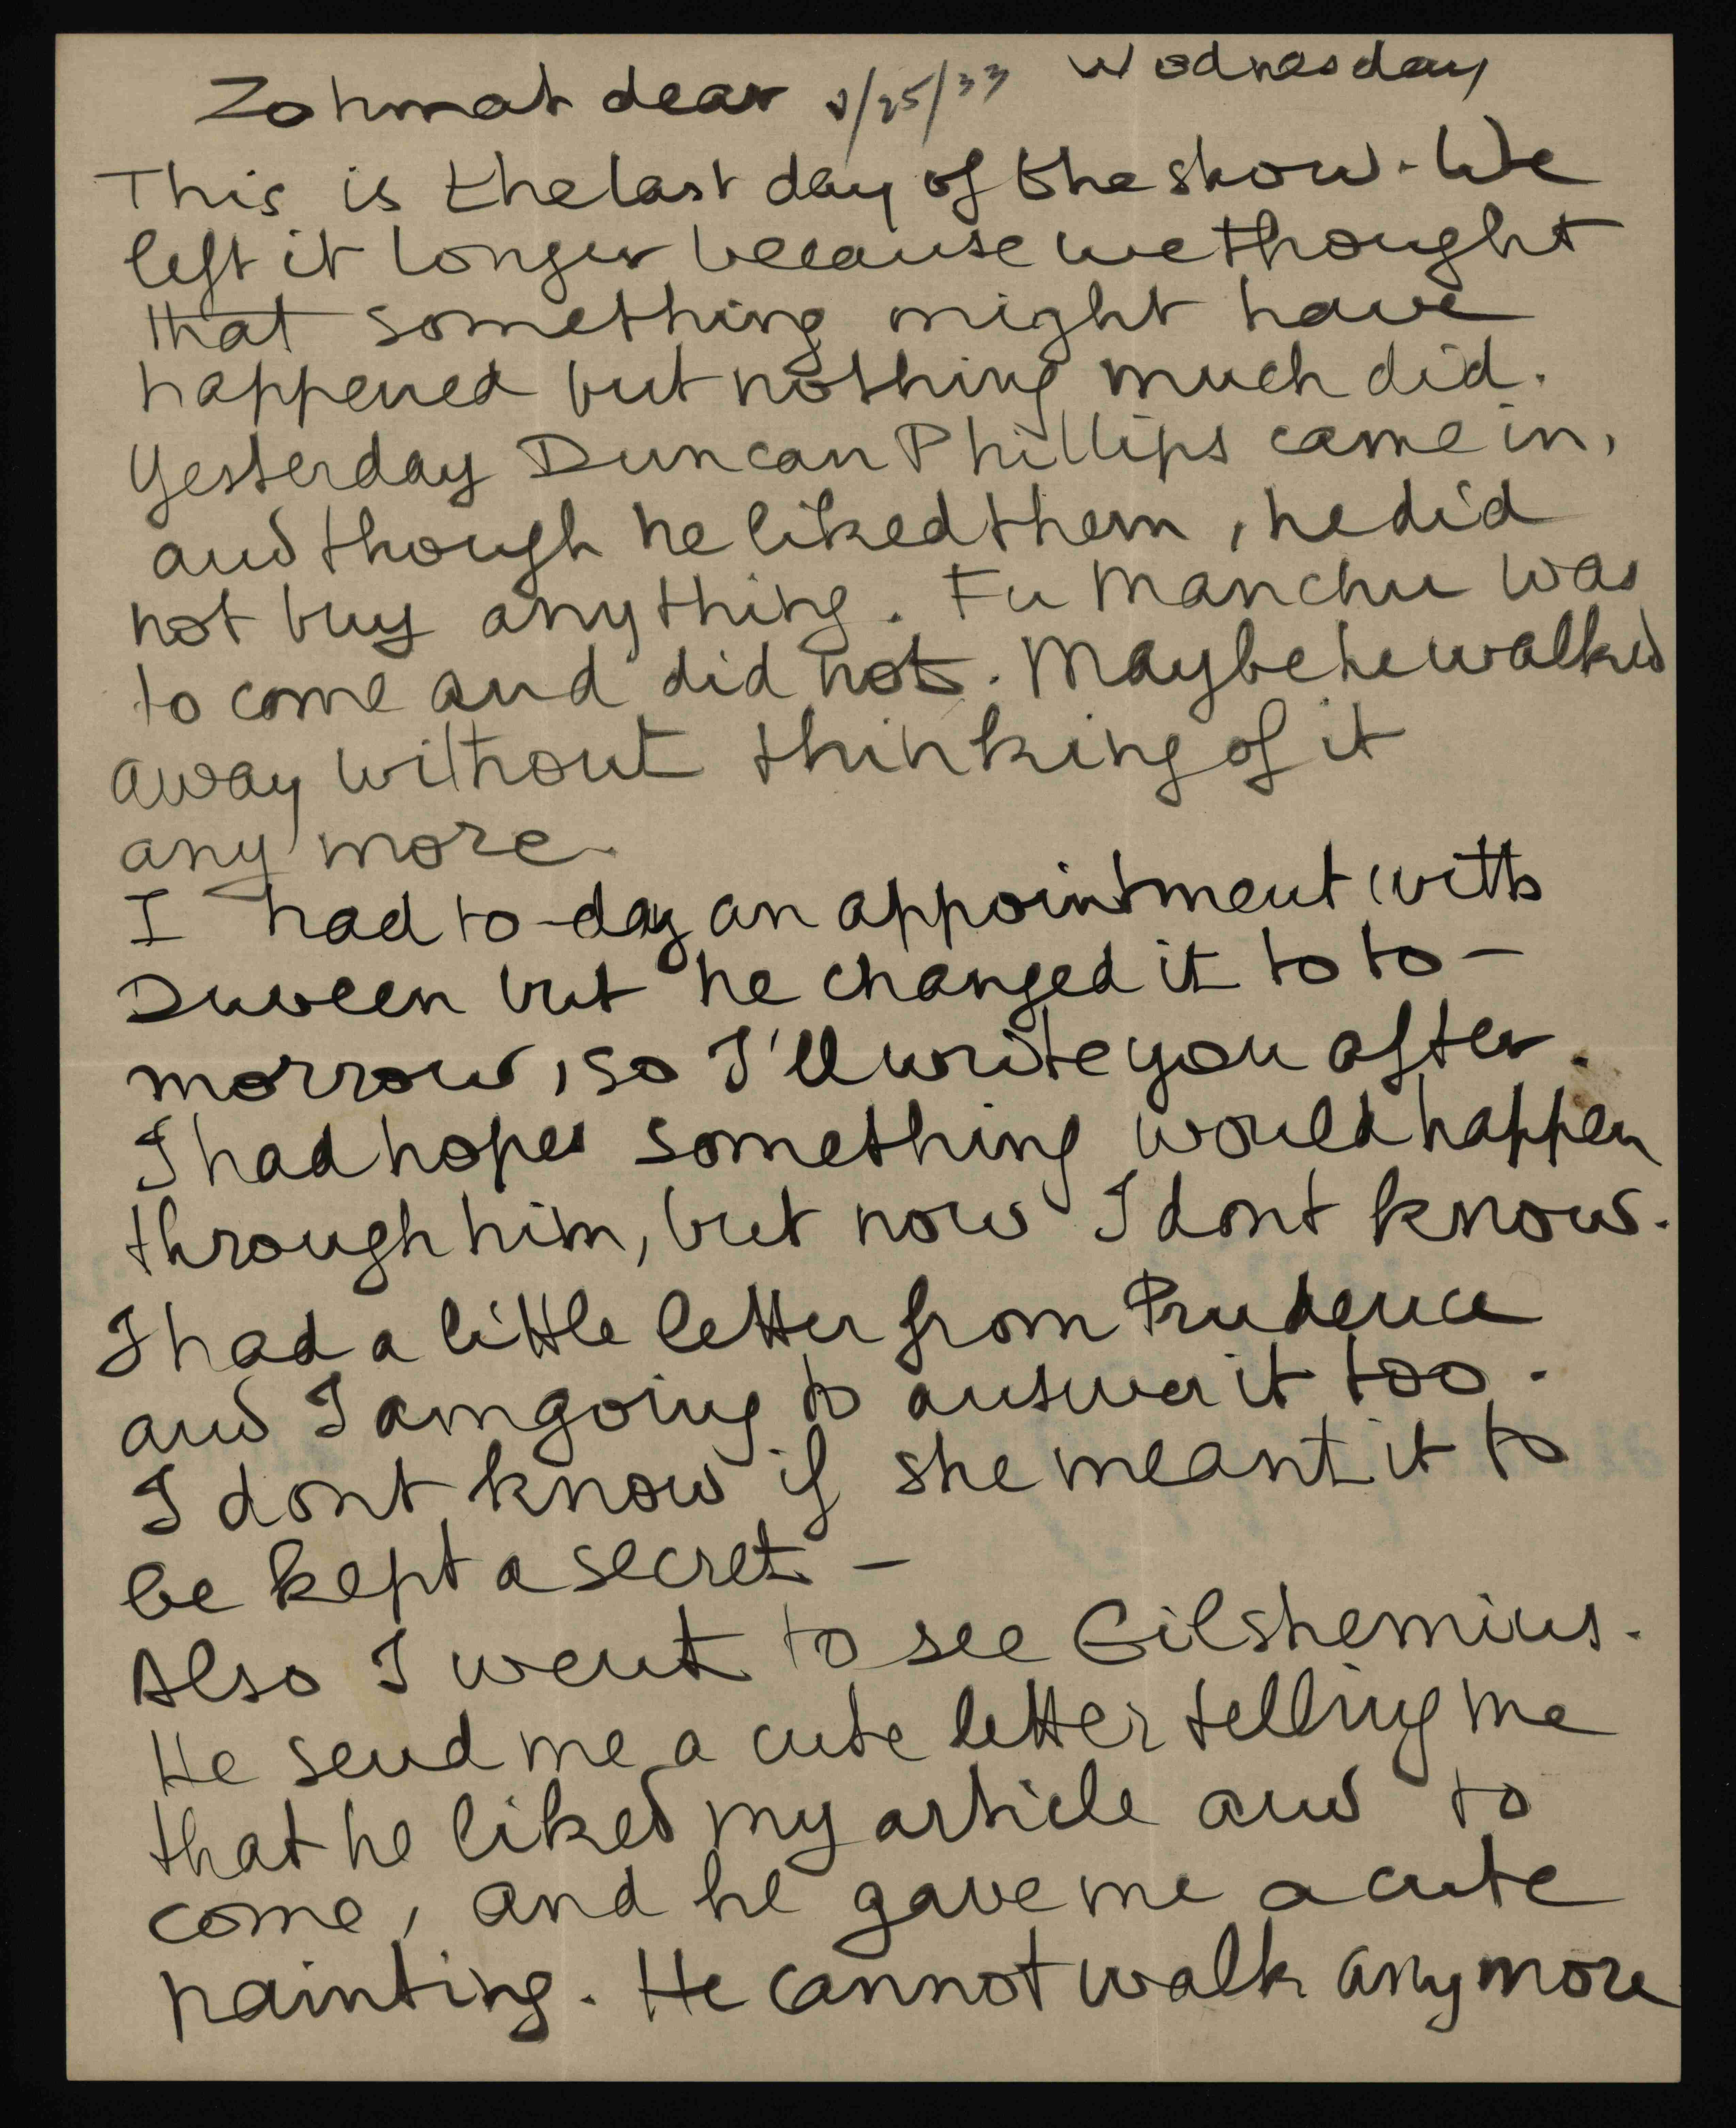 Zohmah dear 1/25/33 Wednesday
This is the last day of the show. We
left it longer because we thought
that something might have
happened but nothing much did.
Yesterday Duncan Phillips came in,
and though he liked them, he did
not buy anything. Fu Manchu was
to come and did not. Maybe he walked
away without thinking of it
any more.
I had to-day an appointment with
Duveen but he changed it to to-
morrow, so I'll write you after.
I had hopes something would happen
through him, but now I dont know.
I had a little letter from Prudence
and I am going to answer it too.
I dont know if she meant it to
be kept a secret –
Also I went to see Eilshemius.
He send me a cute letter telling me
that he liked my article and to
come, and he gave me a cute
painting. He cannot walk anymore